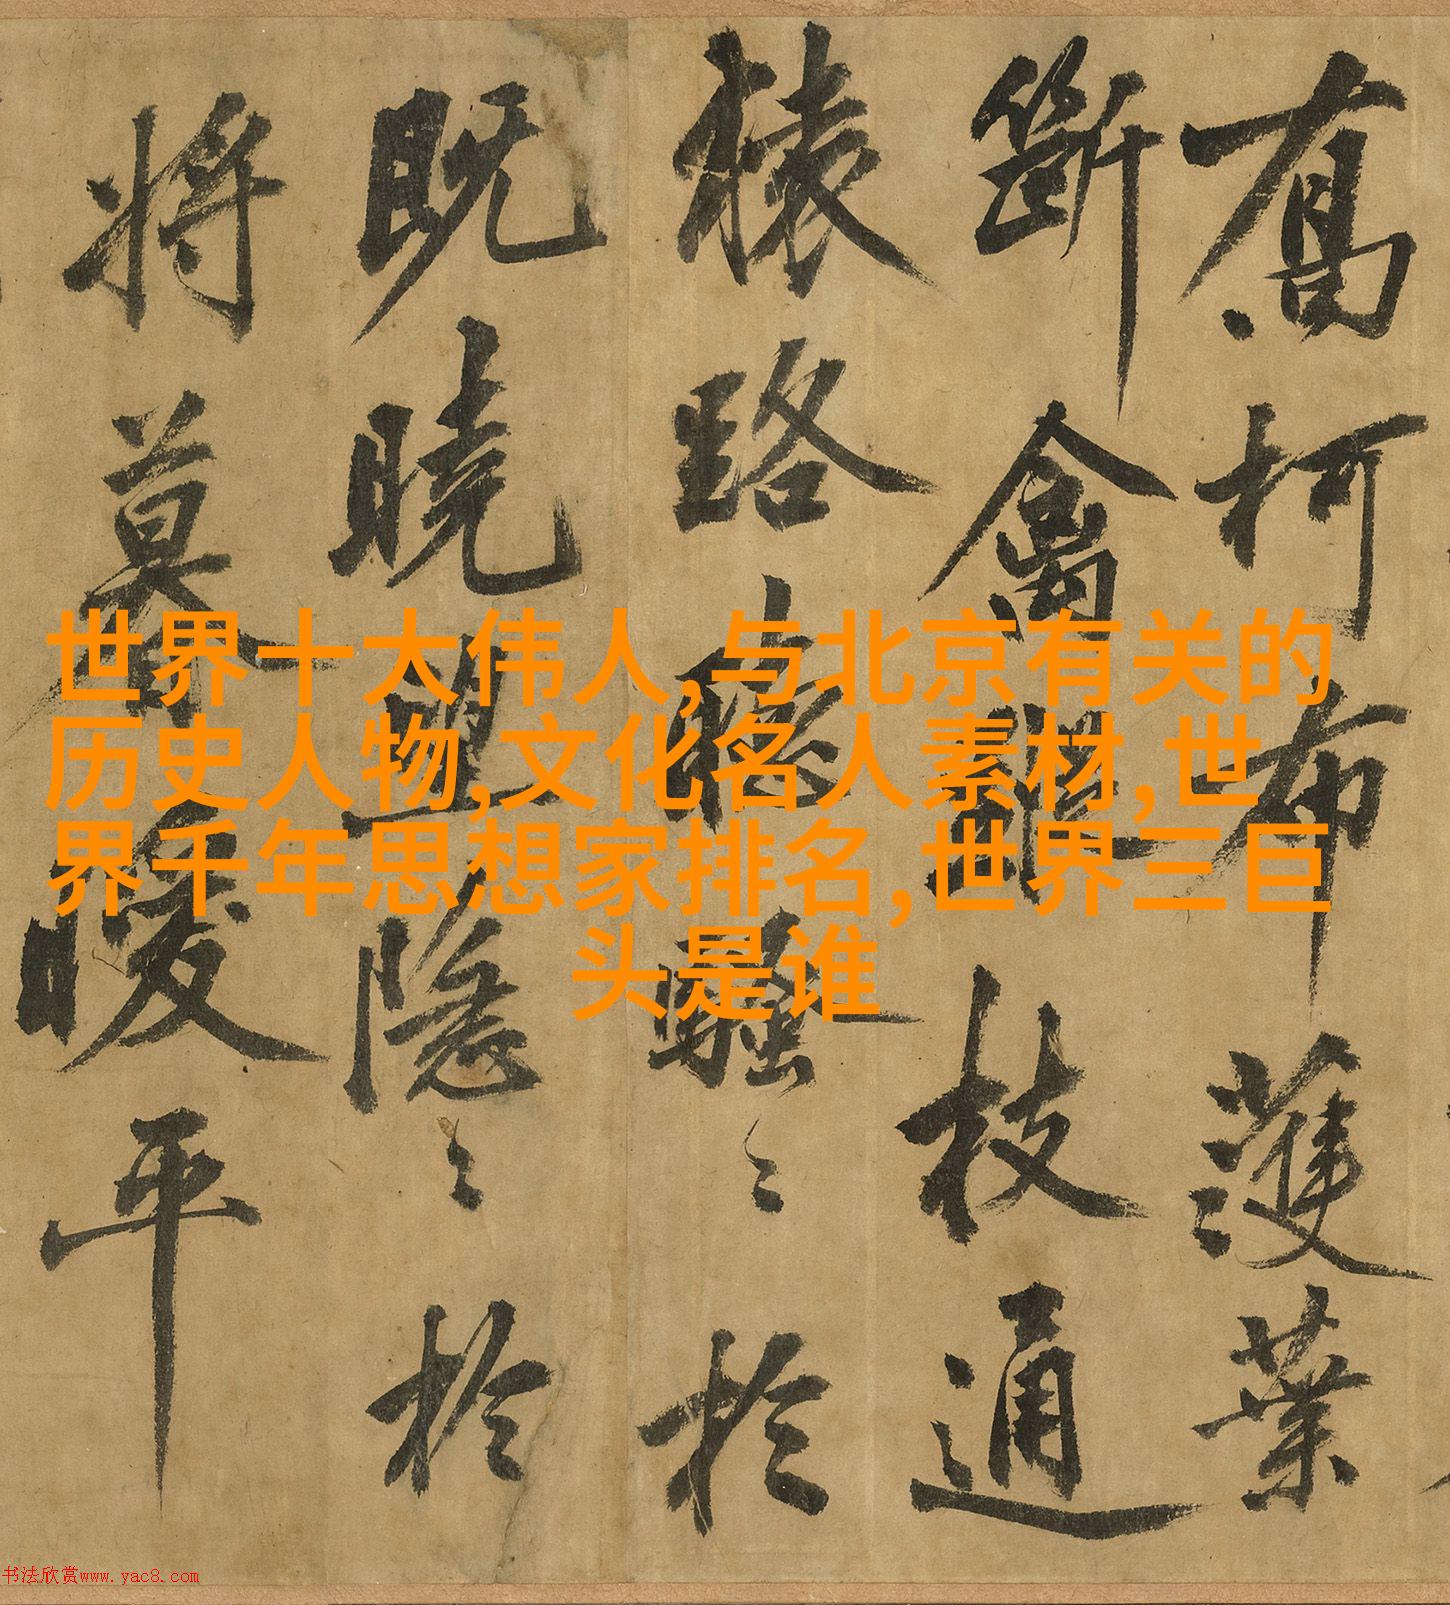 喬柯布濩葉
斷禽枝通
猿路聽騷〻於
既曉望隱〻於
將莫曖平
世界十大伟人,与北京有关的
历史人物,文化名人素材,世
界千年思想家排名,世界三巨
头是谁
书法欣赏www.yac8.com